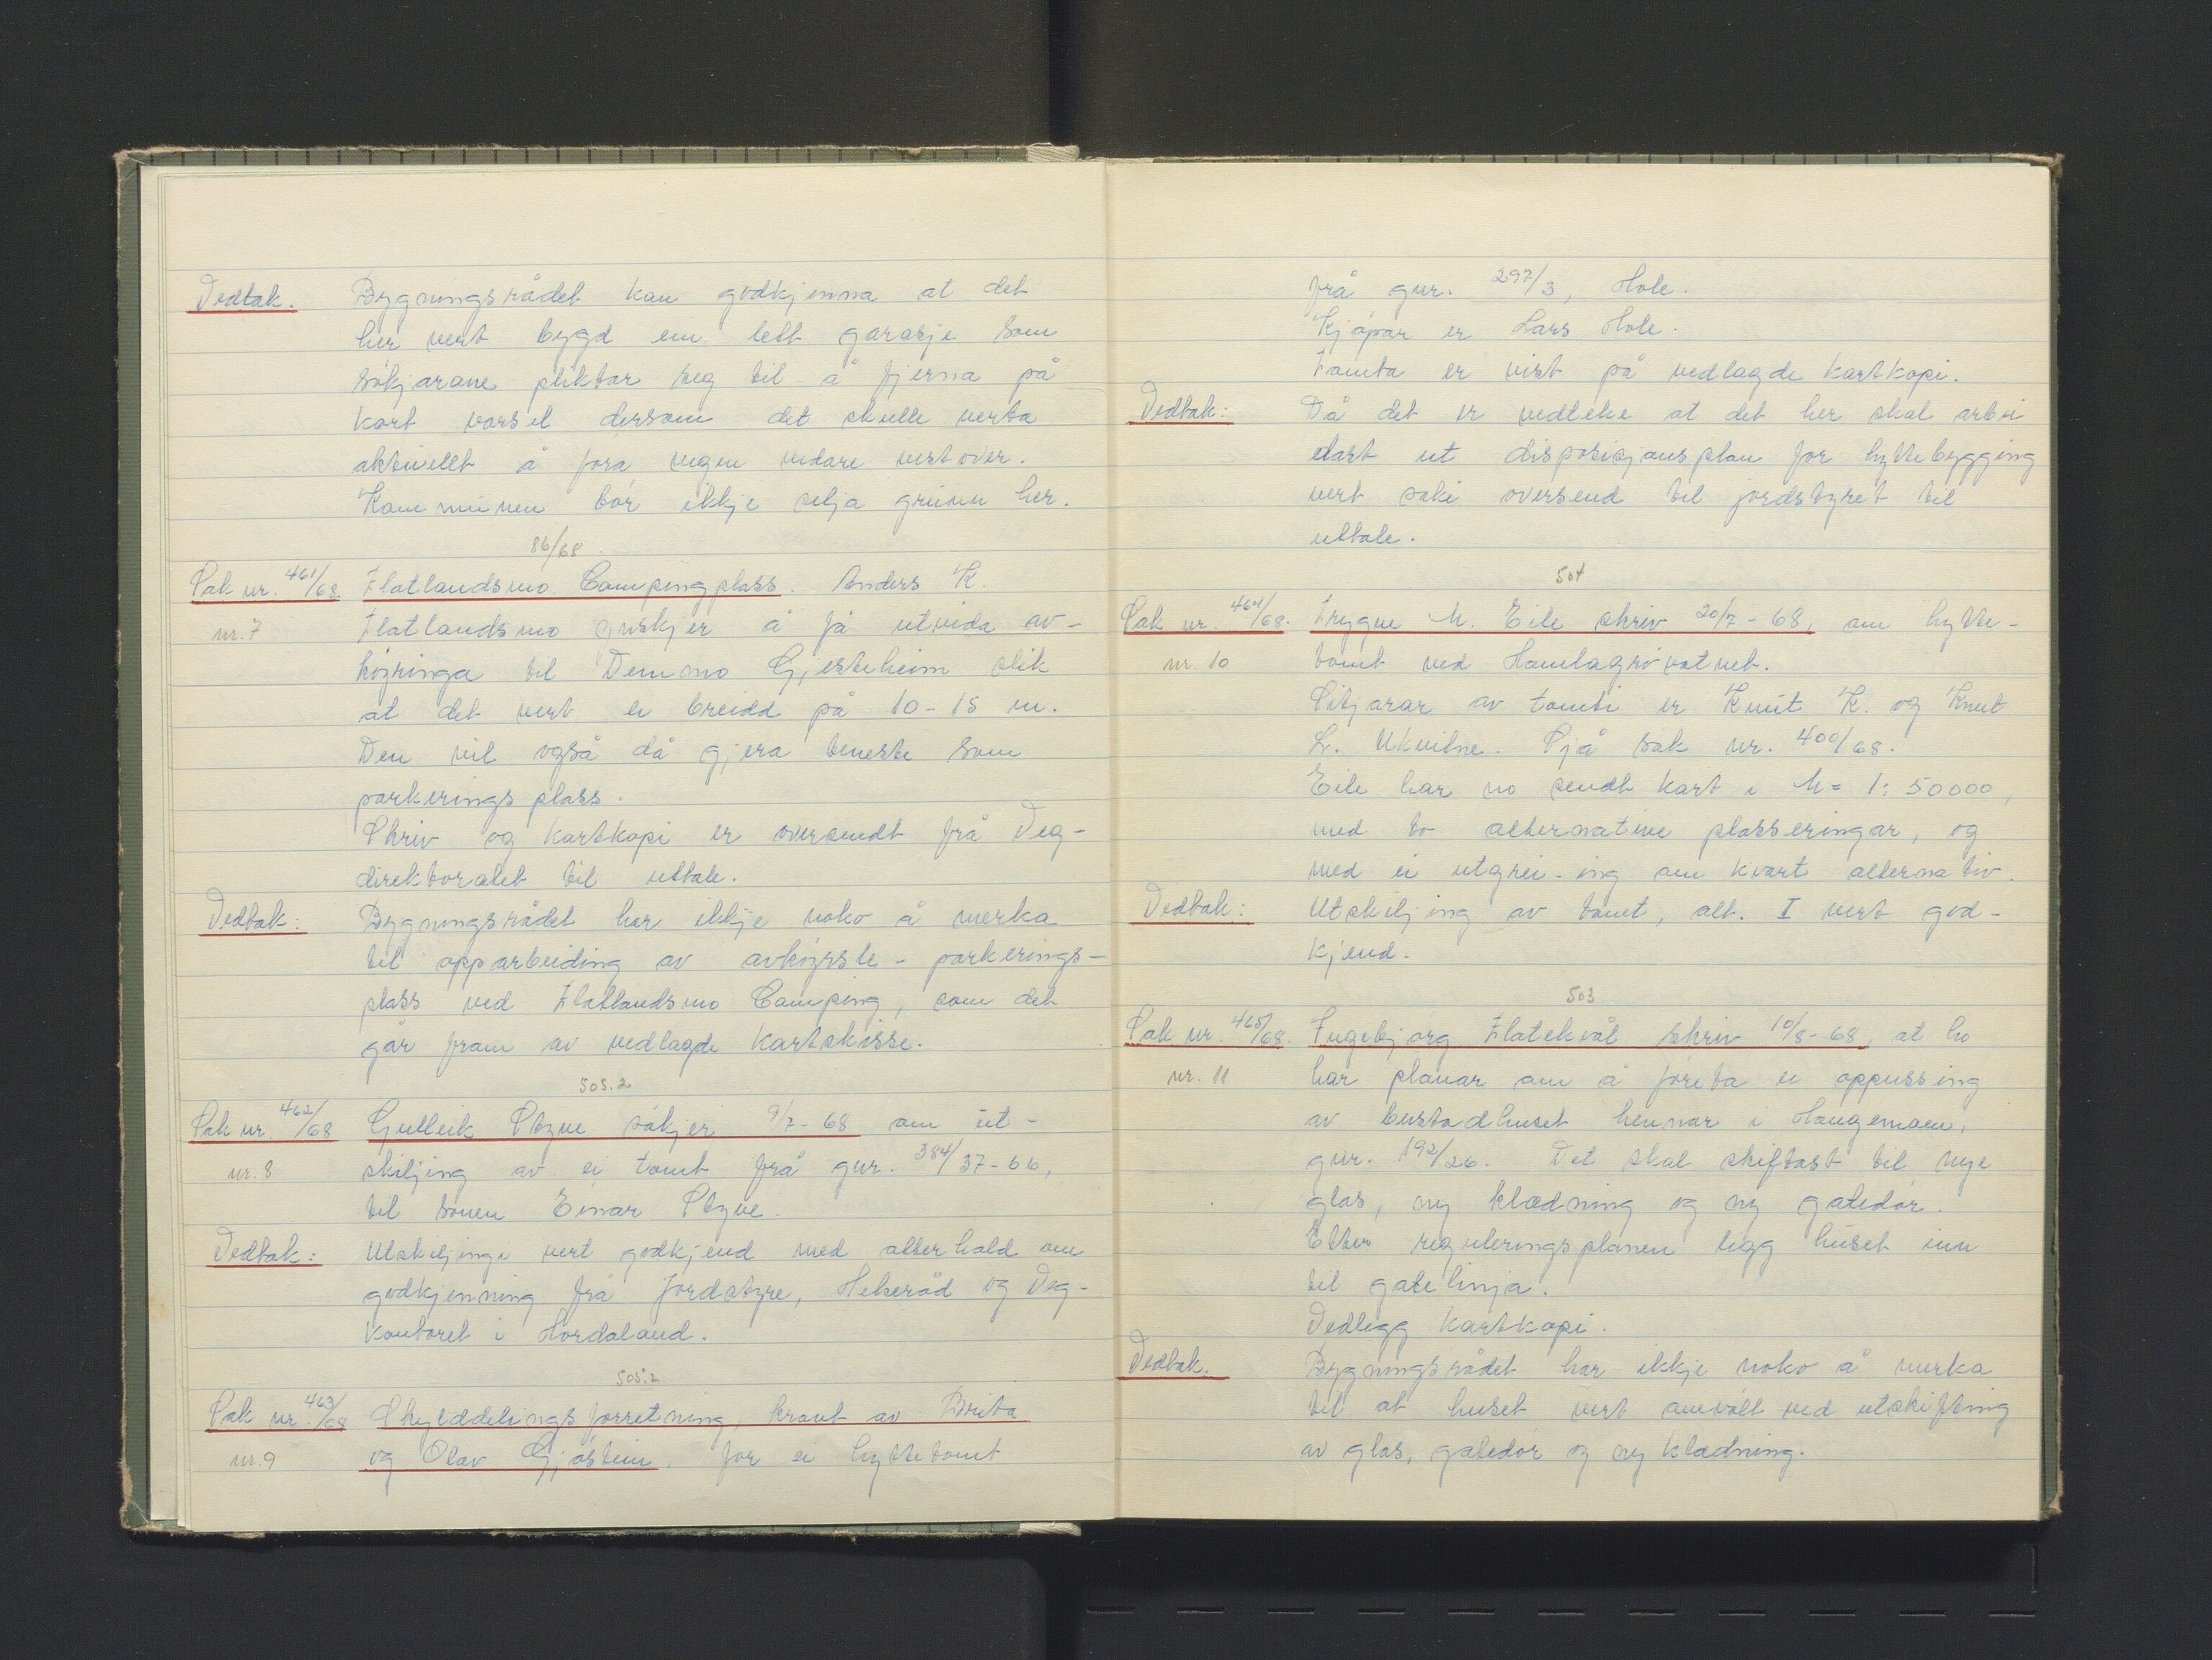 Vedtak. Bygningsrådet kan godkjenna at det
her vert bygd en lett garasje som
søkjarane pliktar seg til å fjerna på
kort varsel dersom det skulle verta
aktuellt å føra vegen vidare vestover.
Kommunen bør ikkje selja grunn her.
86/68
Sak nr. 461/68. Flatlandsmo Campingplass. Anders K.
nr. 7 Flatlandsmo ynskjer å få utvida av-
køyringa til Demmo Gjesteheim slik
at det vert ei breidd på 10-15 m.
Den vil også då gjera teneste som
parkeringsplass.
Skriv og kartkopi er oversendt frå Veg-
direktoratet til uttale.
Vedtak: Bygningsrådet har ikkje noko å merka
til opparbeiding av avkøyrsle - parkerings-
plass ved Flatlandsmo Camping, som det
går fram av vedlagde kartskisse.
505.2
Sak nr. 462/68 Gulleik Styve søkjer 9/7-68 om ut-
nr. 8 skiljing av ei tomt frå gnr. 384/37-66,
til sonen Einar Styve.
Vedtak: Utskiljingi vert godkjend med atterhald om
godkjenning frå Jordstyre, Helseråd og Veg-
kontoret i Hordaland.
505.2
Sak nr. 463/68 Skylddelingsforretning, kravt av Brita
nr. 9 og Olav Gjøstein, for ei hyttetomt
frå gnr. 297/3, Hole.
Kjøpar er Lars Hole.
Tomta er vist på vedlagde kartkopi.
Vedtak: Då det er vedteke at det her skal arbei
dast ut disposisjonsplan for hyttebygging
vert saki oversend til jordstyret til
uttale.
504
Sak nr. 464/68. Trygve M. Eile skriv 20/7-68, om hytte-
nr. 10 tomt ved Hamlagrøvatnet.
Sitjarar av tomti er Knut K. og Knut
L. Ukvitne. Sjå sak nr. 400/68.
Eile har no sendt kart i M = 1:50000,
med to alternative plasseringar, og
med ei utgrei-ing om kvart alternativ.
Vedtak: Utskiljing av tomt, alt. I vert god-
kjend.
503
Sak nr. 465/68. Ingebjørg Flatekvål skriv 10/8-68, at ho
nr. 11 har planar om å foreta ei oppussing
av bustadhuset hennar i Haugemoen,
gnr. 192/26. Det skal skiftast til nye
glas, ny klædning og ny gatedør.
Etter reguleringsplanen ligg huset inn
til gatelinja.
Vedlegg kartkopi.
Vedtak. Bygningsrådet har ikkje noko å merka
til at huset vert umvølt ved utskifting
av glas, gatedør og ny klædning.